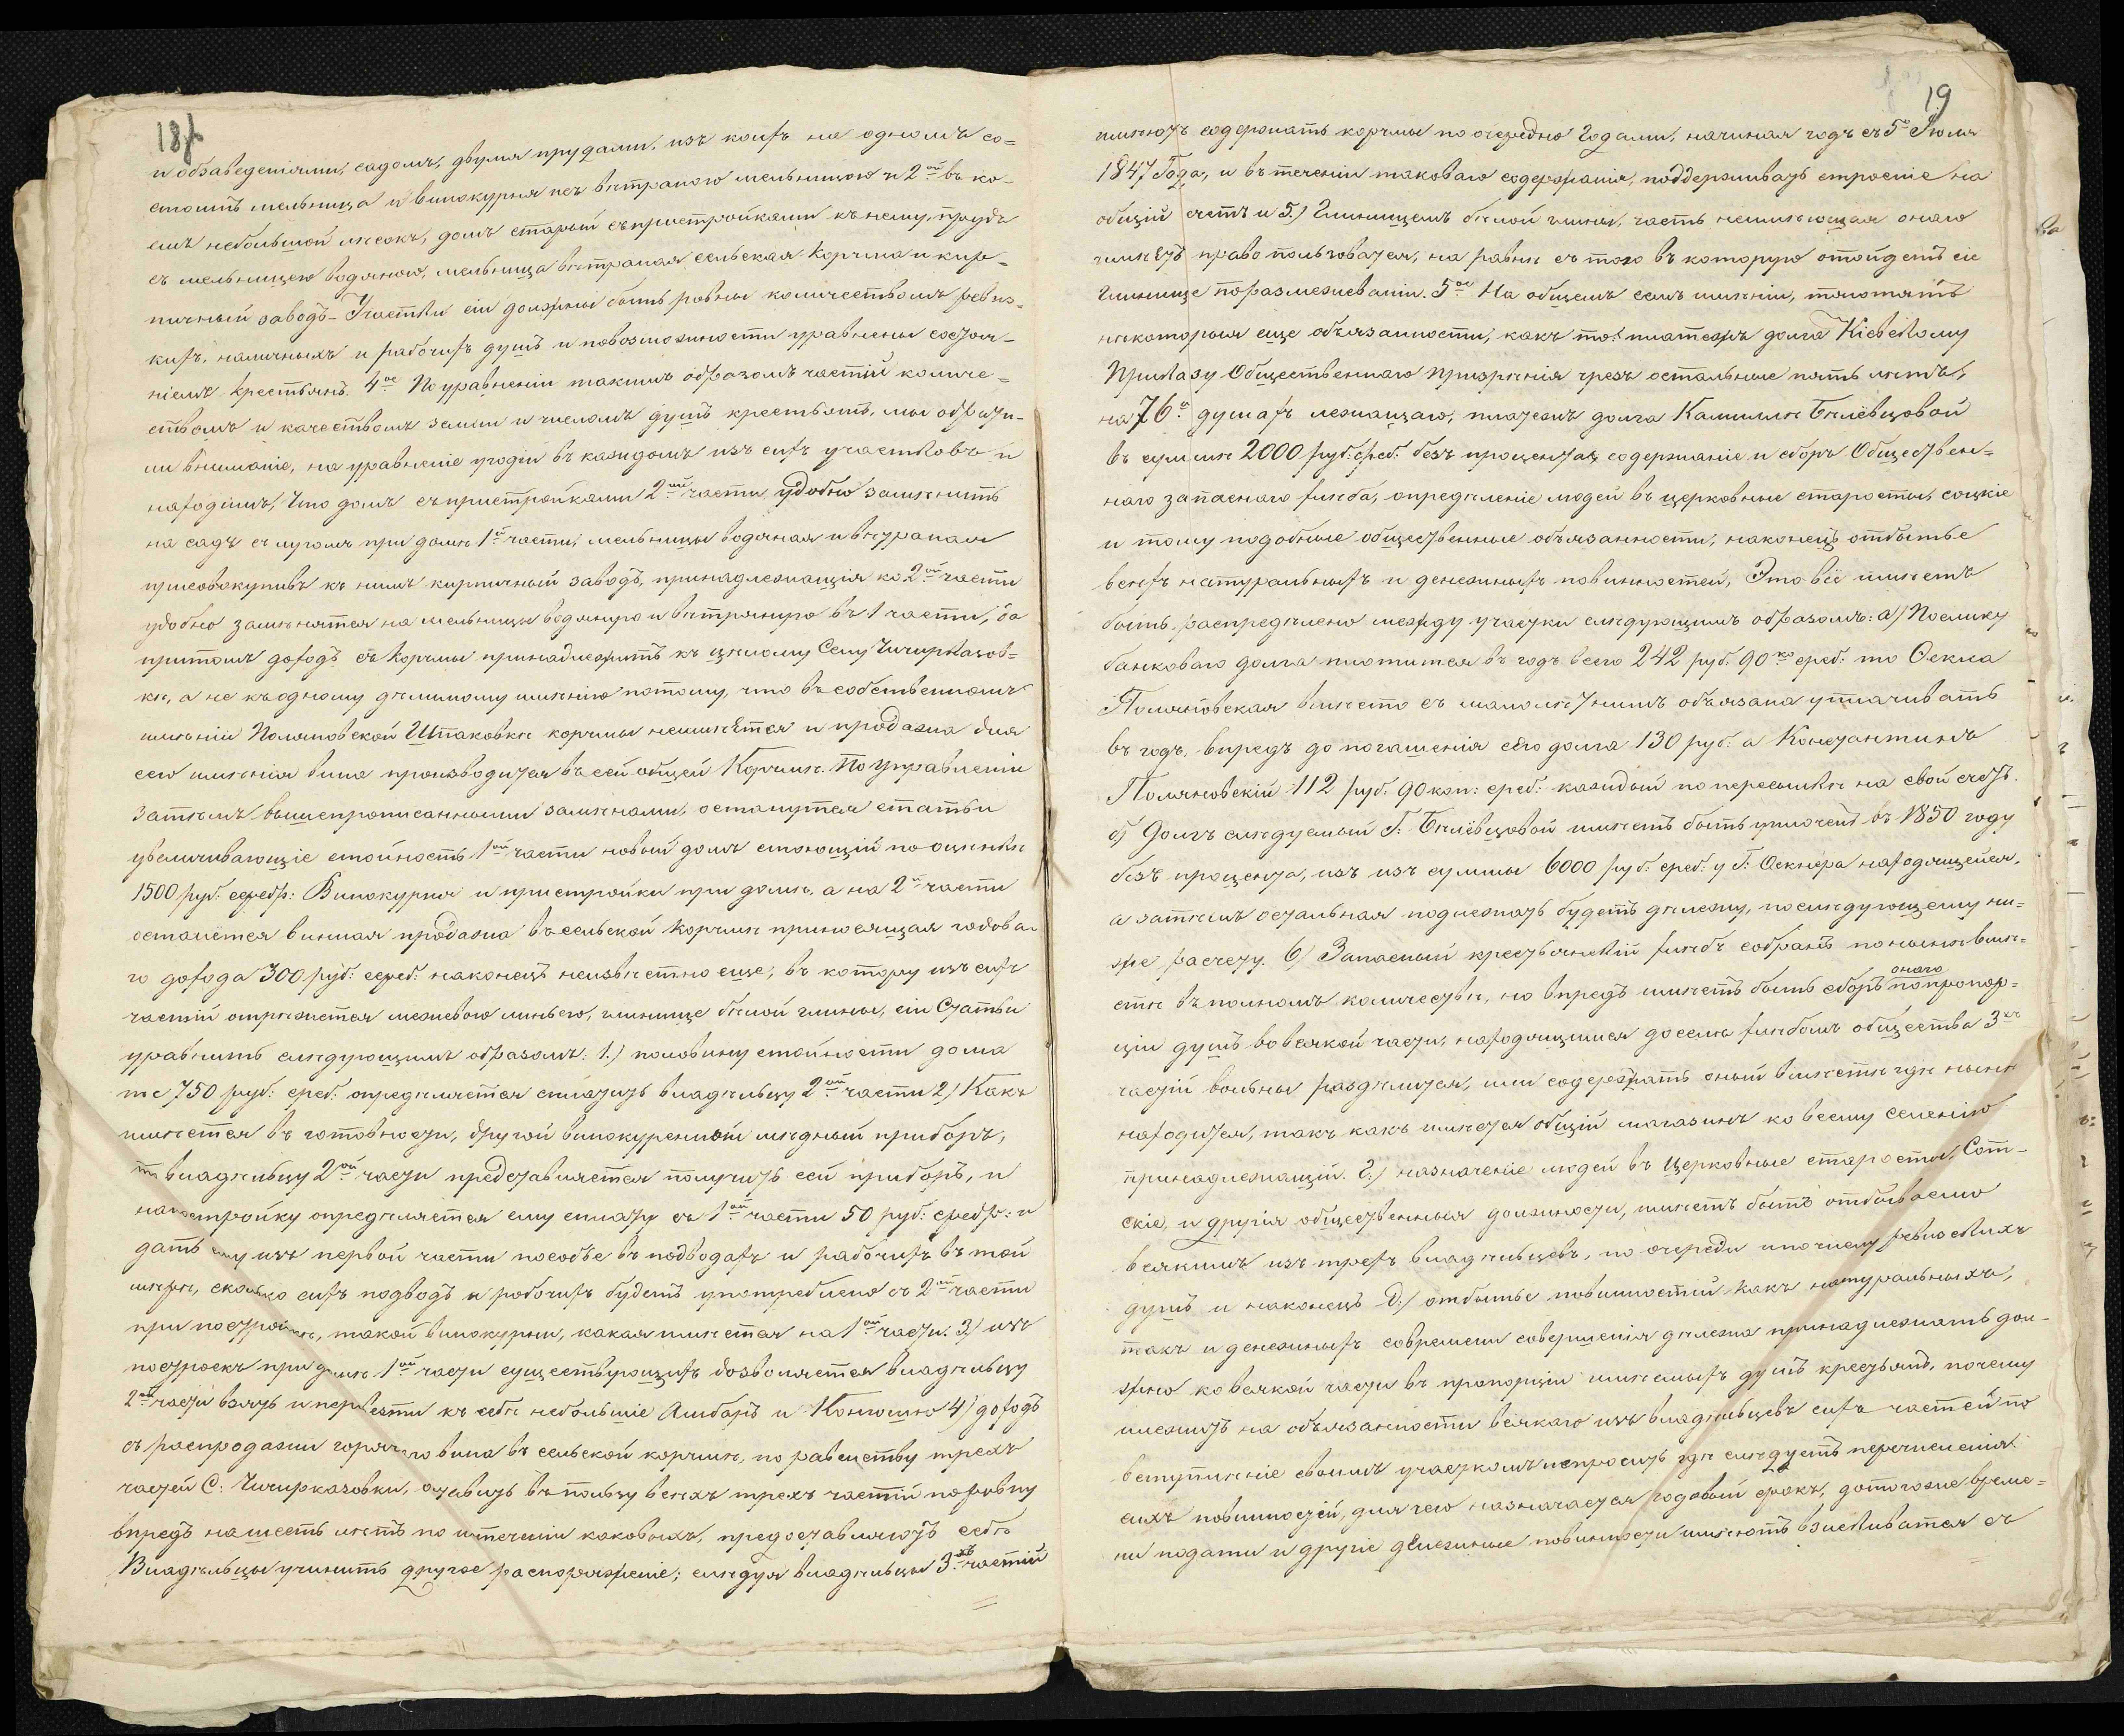 18
и обзаведеніями, садомъ, двумя прудами, изъ коихъ на одномъ со=
стоитъ мельница и винокурня не вѣтраною мельницою и 2ой въ ко-
емъ небольшой лѣсокъ, домъ старый съ пристройками къ нему, прудъ
съ мельницею водяною, мельница вѣтраная сельская Корчма и кир-
пичный заводъ – Участки сіи должны быть ровны количествомъ ревиз-
кихъ, наличныхъ и рабочихъ душъ и по возможности уравнены состоя-
ніемъ крестьянъ. 4ое По уравненіи такимъ образомъ частій количе=
ствомъ и качествомъ земли и числомъ душъ крестьянъ, мы обрати-
ли вниманіе, на уравненіе угодій въ каждомъ изъ сихъ участковъ и
находимъ, что домъ съ пристройками 2ой части удобно замѣнить
на садъ съ лугомъ при домѣ 1й части, мельницы водяная и вѣтраная
присовокупивъ къ нимъ кирпичный заводъ, принадлежащія ко 2ой части
удобно замѣнятся на мельницы водяную и вѣтряную въ 1 части, да
притомъ доходъ съ корчмы принадлежитъ къ цѣлому Селу Чичирказов=
кѣ, а не къ одному дѣлимому имѣнію потому, что въ собственномъ
имѣніи Поляновской Штаковкѣ корчмы неимѣется и продажа для
сего имѣнія вина производится въ сей общей Корчмѣ. По управленіи
затѣмъ вышепрописанными замѣнами, останутся статьи
увеличивающіе стойность 1ой части новый домъ стоющій по оцѣнкѣ
1500 руб: серебр: Винокурня и пристройки при домѣ, а на 2й части
остаётся винная продажа въ сельской корчмѣ приносящая годова-
го дохода 300 руб: сереб: наконецъ неизвѣстно еще, въ котору изъ сихъ
частій отрѣжется межевою линьею, глинище бѣлой глины, сіи Статьи
уравнить слѣдующимъ образомъ: 1.) половину стойности дома
те 750 руб: среб: опредѣляется сплатить владѣльцу 2ой части 2) Какъ
имѣется въ готовности, другой винокуренный мѣдный приборъ,
то владѣльцу 2ой части представляется получить сей приборъ, и
на постройку опредѣляется ему сплату съ 1ой части 50 руб: серебр: и
дать ему изъ первой части пособье въ подводахъ и рабочихъ въ той
мѣрѣ, сколько сихъ подводъ и робочихъ будетъ употреблено съ 2ой части
при постройкѣ, такой винокурни, какая имѣется на 1ой части. 3) изъ
построекъ при домѣ 1ой части существующихъ дозволяется владѣльцу
2ой части взять и перевезти къ себѣ небольшіе Амбаръ и Конюшню 4) доходъ
съ распродажи горячего вина въ сельской корчмѣ, по равенству трехъ
частей С: Чичирказовки, оставить въ пользу всѣхъ трехъ частій поровну
впредъ на шесть лѣтъ по истеченіи каковыхъ, предоставляютъ себѣ
Владѣльцы учинить другое распоряженіе; слѣдуя владѣльцы 3хъ частій
19
имѣютъ содержать корчмы по очередно Годами, начиная годъ съ 5го Іюля
1847 Года, и въ теченіи таковаго содержанія, поддерживать строеніе на
общій счетъ и 5.) Глинищемъ бѣлой глины, часть неимѣющая онаго
имѣетъ право пользоватся, на равнѣ съ тою въ которую отойдетъ сіе
Глинище по размежеваніи. 5ое На общемъ семъ имѣніи, тяготятъ
нѣкоторыя еще объязанности, какъ то: платежъ долга Кіевскому
Приказу Общественнаго Призрѣнія чрезъ остальные пять лѣтъ,
на 76и душахъ лежащаго, платежъ долга Камиллѣ Бѣлёвцовой
въ суммѣ 2000 руб: среб: безъ процента, содержаніе и сборъ Обществен=
наго запаснаго хлѣба, опредѣленіе людей въ церковные старосты, соцкіе
и тому подобные общественные объязанности, наконецъ отбытье
всѣхъ натуральныхъ и денежныхъ повинностей, Это всё имѣетъ
быть распредѣлено между участки слѣдующимъ образомъ: а) Поелику
банковаго долга платится въ годъ всего 242 руб. 90ко среб: то Оекла
Поляновская вмѣсто съ малолѣтнимъ объязана уплачивать
въ годъ, впредъ до погашенія сего долга 130 руб: а Константинъ
Поляновскій 112 руб. 90 коп: среб: каждый по пересылкѣ на свой счетъ.
б) Долгъ слѣдуемый Г: Бѣлёвцовой имѣетъ быть уплоченъ въ 1850 году
безъ процента, изъ суммы 6000 руб: среб: у Г: находящейся,
а затѣмъ остальная подлежать будетъ дѣлежу, по слѣдующему ни=
же расчету. в) Запасный крестьянскій хлѣбъ собранъ понынѣ вмѣ=
стѣ въ полномъ количествѣ, но впредъ имѣетъ быть сборъ онаго по пропор=
ціи душъ во всякой части, находящимся доселѣ хлѣбомъ общества 3хъ
частій вольны раздѣлится, или содержать оный вмѣстѣ гдѣ нынѣ
находится, такъ какъ имѣется общій магазинъ ко всему селенію
принадлежащій. Г.) назначеніе людей въ Церковные старосты, Сот-
скіе, и другія общественныя должности, имѣетъ быть отбываемо
всякимъ изъ трехъ владѣльцевъ, по очереди и по числу ревизскихъ
душъ и наконецъ Д.) отбытье повинностій какъ натуральныхъ,
такъ и денежныхъ современи совершенія дѣлежа принадлежать дол-
жно ко всякой части въ пропорціи имѣемыхъ душъ крестьянъ, почему
лежитъ на объязанности всякаго изъ владѣльцевъ сихъ частей по
вступленіе своимъ участкомъ испросить гдѣ слѣдуетъ перечисленія
сихъ повинностей, для чего назначается годовый срокъ, дотогоже време=
ни подати и другіе денежные повинности имѣютъ взыскиватся съ